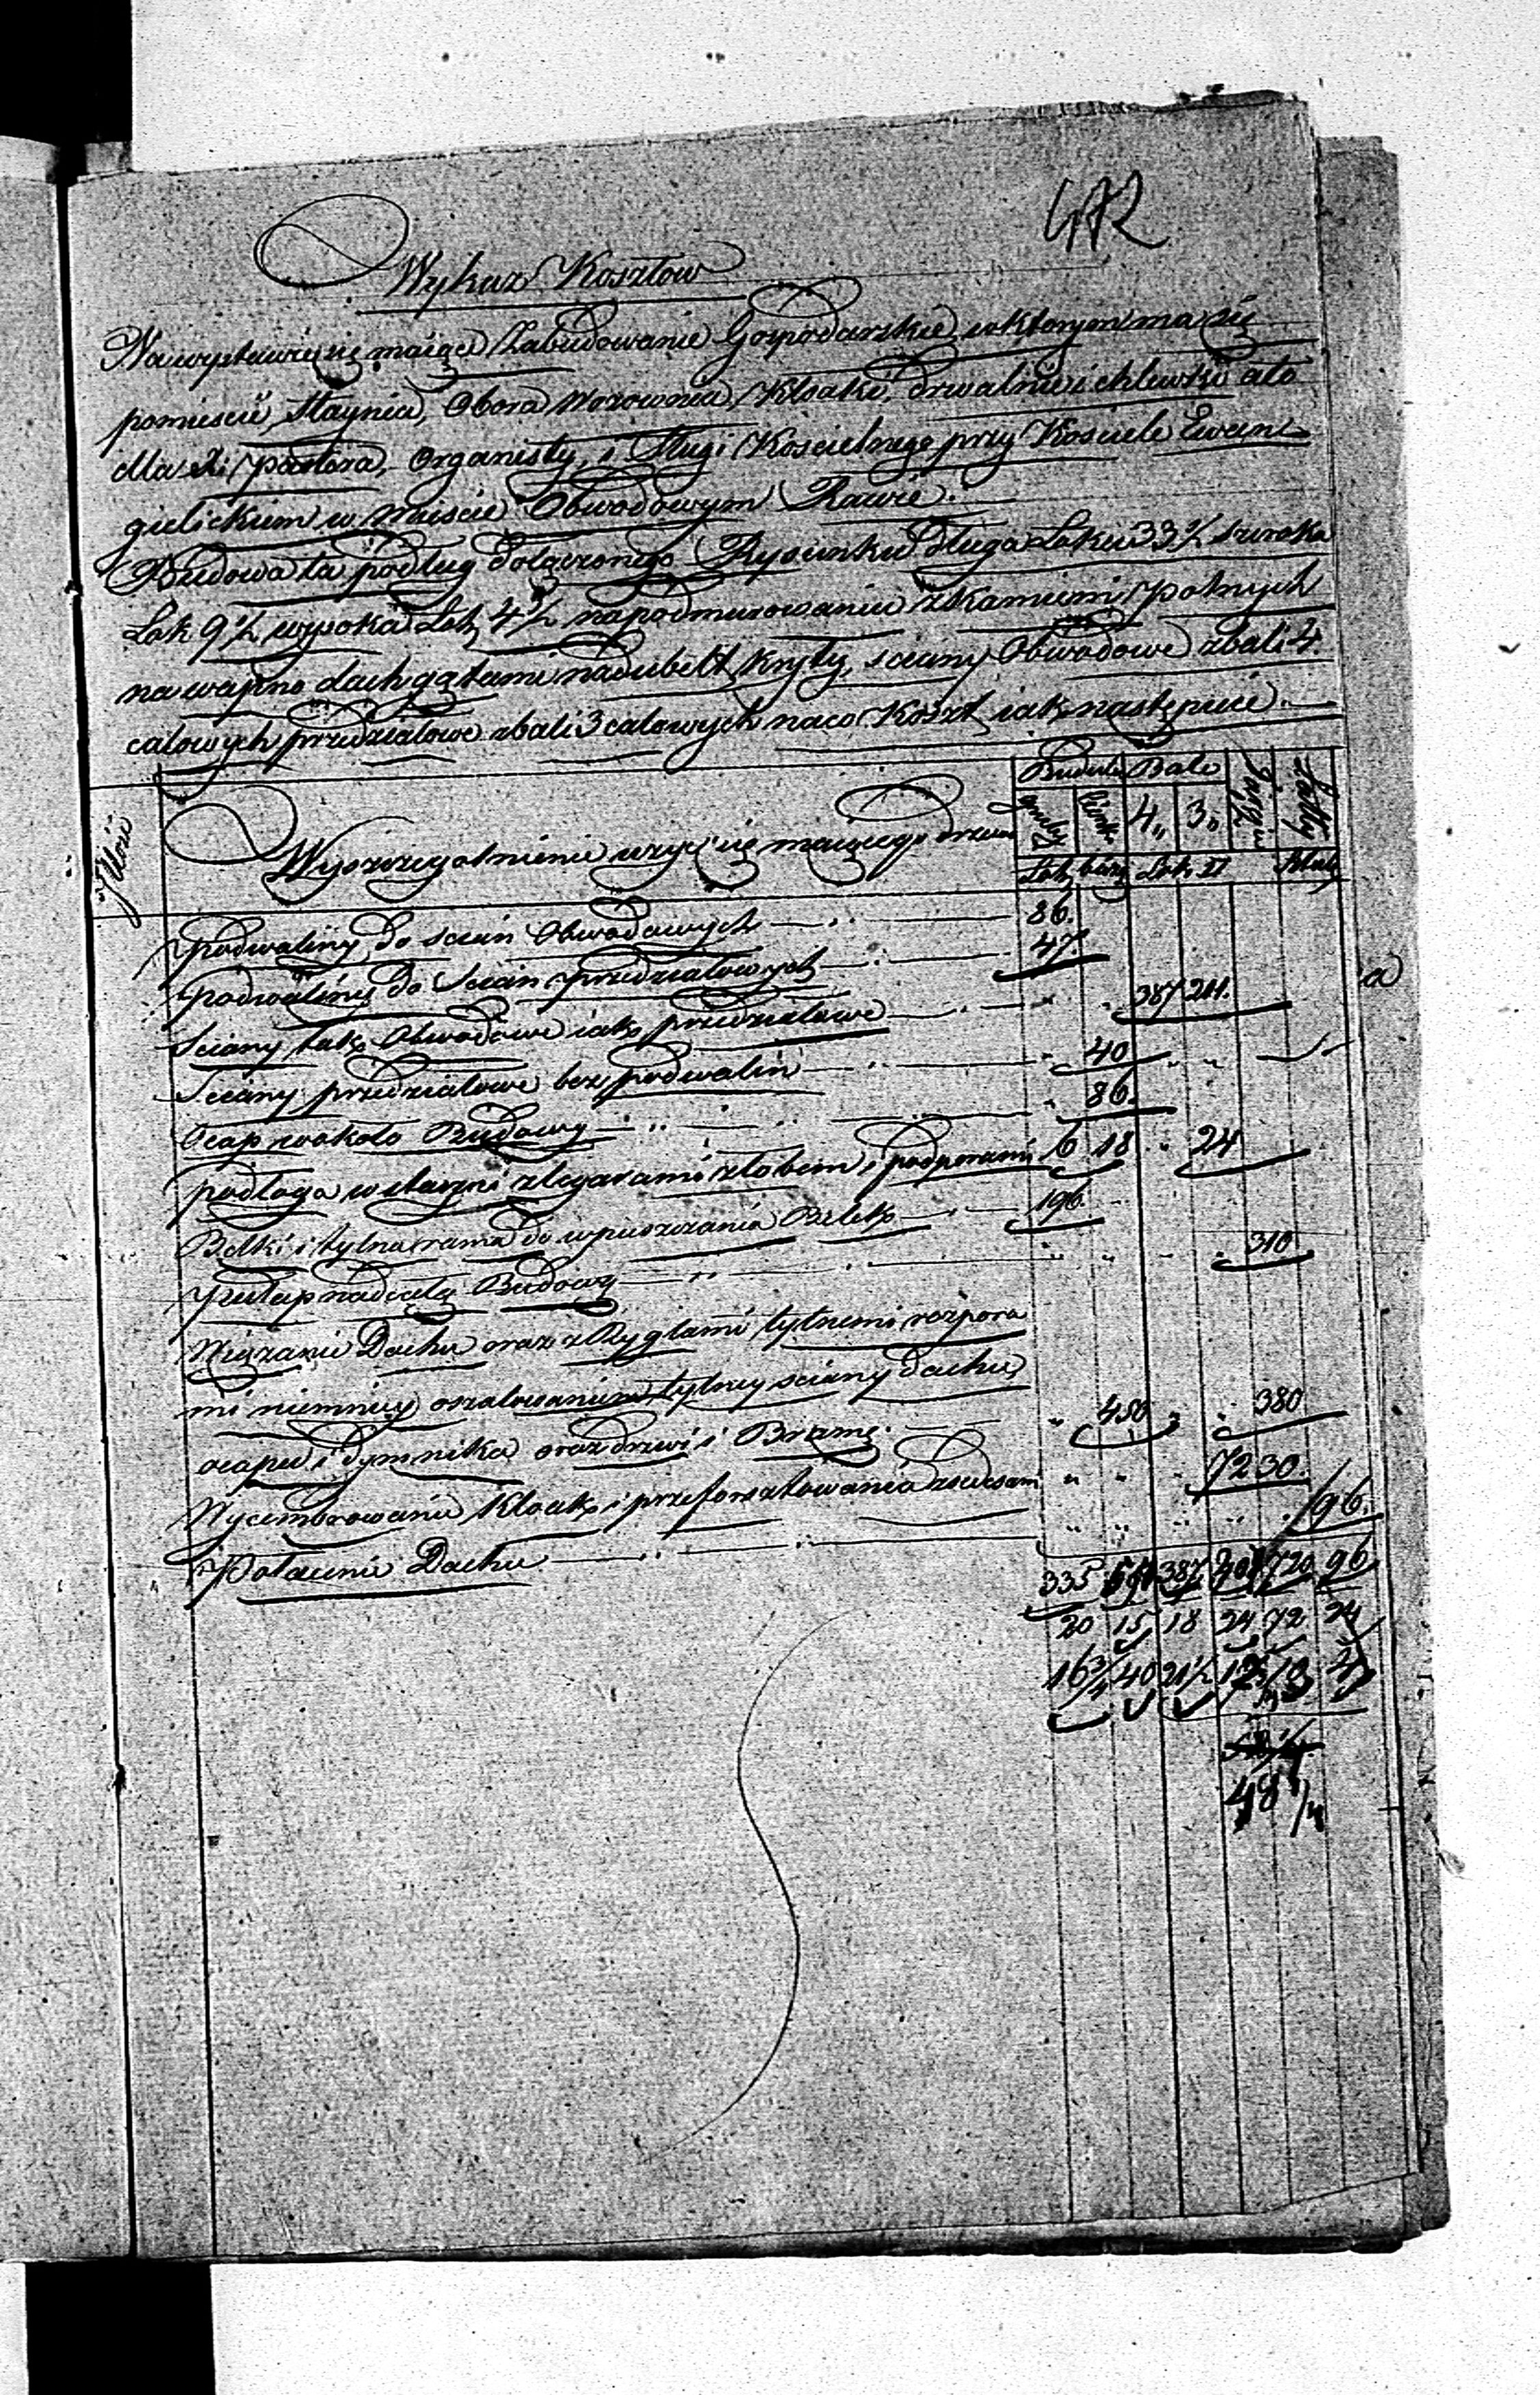 472
Wykaz Kosztow
Na wystawić się maiące Zabudowanie Gospodarskie, w ktorym ma się
pomieścić Staynia, Obora Wozownia, Kloaki, drwalnie i chlewki ato
dla Xi Pastora, Organisty, i Sługi Koscielnego przy Kosciele Ewan
gielickim w Miescie Obwodowym Rawie.
Budowa ta podług dołączonego Rysunku długa Łokci 33½ szeroka
Łok 9½ wysoka Łok 4½ na podmurowaniu z kamieni polnych
na wapno dach gątami na dubelt kryty, sciany Obwodowe z bali 4.
calowych przedziałowe z bali 3 calowych na co Koszt iak następuie
Budulec Bale
Ilość Wyszczegolnienie użyć się maiącego drzewa gruby 4" 3" Łatty
Łok bieżą Łok □ Sztuk
Podwaliny do scian Obwodowych 86.
Podwaliny do Scian przedziałowych 47.
Sciany tak Obwodowe iak przedziałowe 387 211.
Sciany przedziałowe bez podwalin 40
Ocap wokoło Budowy 86.
podłoga w stayni z legarami złobem i podporami 6 18 24
Belki i tylna rama do wpuszczania Belek 196
pułap nad całą Budową 310
Wiązanie Dachu oraz z Ryglami tylnemi rozpora
mi niemniey oszalowaniem tylney sciany dachu,
ocapu i dymnika oraz drzwi i Bramę 450 380
Wycembrowanie Kloak i przeforsztowania 72 30.
Połacenie Dachu 96.
335 387 720 96
20 15 18 24 72 24
16¾ 40 21½ 4
48¼